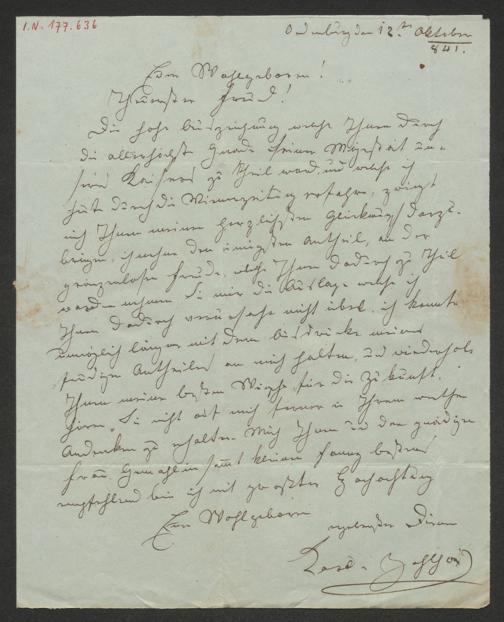 I.N. 177.636
Oedenburg den 12ten Oktober
841.
Euer Wohlgeboren!
Theuerster Freund!
Die hohe Auszeichnung welche Ihnen durch
die allerhöchste Gnade seiner Majestät un-
sers Kaisers zu Theil ward, und welche ich
heut durch die Wienerzeitung erfahre, zwingt
mich Ihnen meinen herzlichsten Glückwunsch darzu-
bringen, ich nehme den innigsten Antheil, an der
grenzenlosen Freude, welche Ihnen dadurch zu Theil
worden nehmen Sie mir die Auslage welche ich
Ihnen dadurch verursache nicht übel, ich konnte
unmöglich länger mit dem Ausdrucke meines
freudigen Antheiles an mich halten, und wiederhole
Ihnen meine besten Wünsche für die Zukunft.
Sie nicht auf mich ferner in Ihrem werthen
Andenken zu erhalten. Mich Ihnen und der gnädigen
Frau Gemahlin samt kleinen Fanny bestens
empfehlend bin ich mit größter Hochachtung
Euer Wohlgeboren
ergebenster Diener